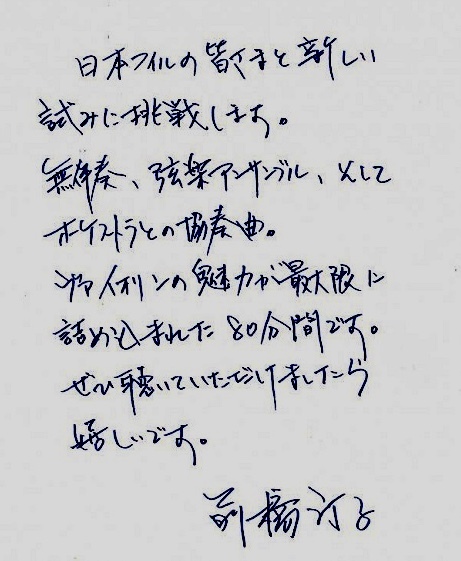 日本フィルの皆さまと新しい
試みに挑戦します。
無伴奏、弦楽アンサンブル、そして
オーケストラとの協奏曲。
ヴァイオリンの魅力が最大限に
詰め込まれた80分間です。
ぜひ聴いていただけましたら
嬉しいです。
前橋汀子